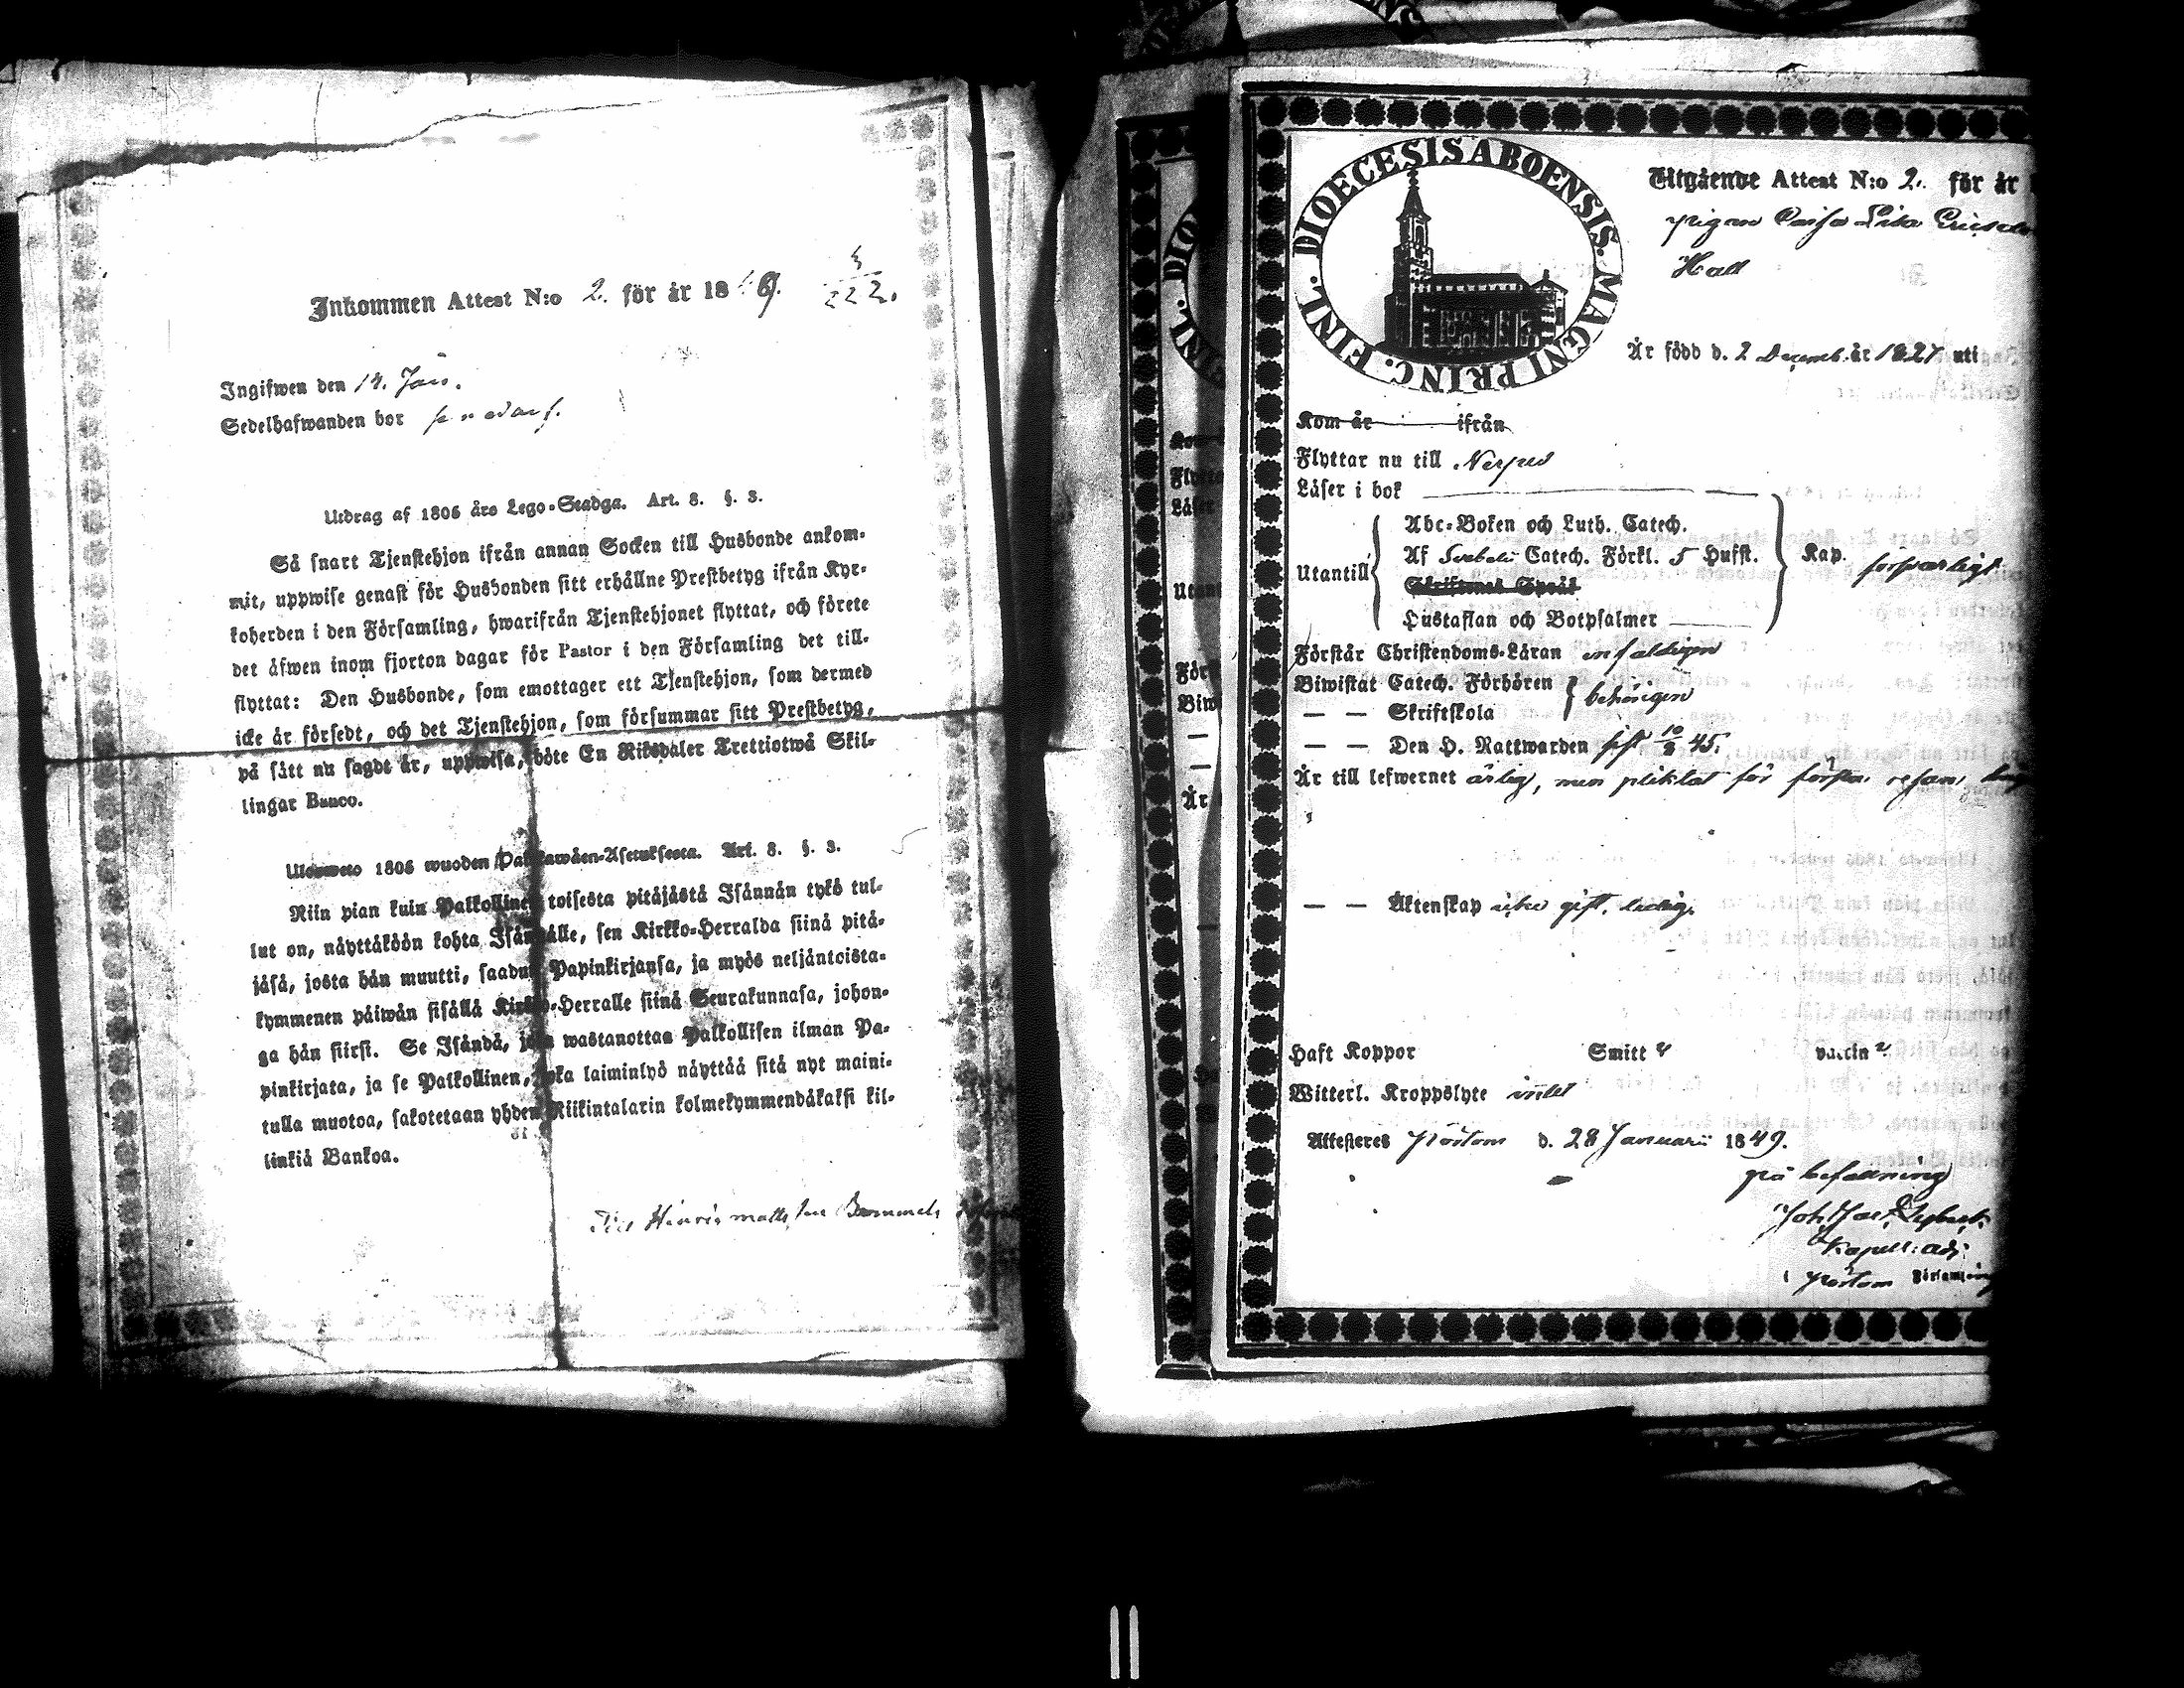 Inkommen Attest N:o 2. för år 1849.
Ingifwen den 14. Jan.
Sedelhafwanden bor
Utdrag af 1805 års Lego-Stadga. Art. 8. §. 3.
Så snart Tjenstehjon ifrån annan Socken till Husbonde ankom-
mit, uppwise genast för Husbonden sitt erhållne Prestbetyg ifrån Kyr-
koherden i den Församling, hwarifrån Tjenstehjonet flyttat, och förete
det äfwen inom fjorton dagar för Pastor i den Församling det till-
flyttat: Den Husbonde, som emottager ett Tjenstehjon, som dermed
icke är försedt, och det Tjenstehjon, som försummar sitt Prestbetyg,
på sätt nu sagdt är, uppwisa, böte En Riksdaler Trettiotwå Skil-
lingar Banco.
Uloswete 1805 wuoden Palkawäen-Asetuksesta. Art. 8. §. 3.
Niin pian kuin Palkollinen toisesta pitäjästä Isännän tykö tul-
lut on, näyttäköön kohta Isännälle, sen Kirkko-Herralda siinä pitä-
jäsä, josta hän muutti, saadun Papinkirjansa, ja myös neljäntoista-
kymmenen päiwän sisällä Kirkko-Herralle siinä Seurakunnasa, johon-
ga hän siirsi. Se Isändä, joka wastanottaa Palkollisen ilman Pa-
pinkirjata, ja se Palkollinen, joka laiminlyö näyttää sitä nyt maini-
tulla muotoa, sakotetaan yhden Riikintalarin kolmekymmendäkaksi kil-
linkiä Bankoa.
Till Henric Mattsson
DIOECESIS ABOENSIS. MAGNI PRINC. FINL.
Utgående Attest N:o 2. för år
pigan Caisa Lisa
Hall
Är född d. 2 Decemb. år 1827 uti
Kom år ifrån
Flyttar nu till Nerpes
Läser i bok
Utantill
Abc-Boken och Luth. Catech.
Af Svebelii Catech. Förkl. 5 Hufst.
Skriftenes Språk
Hustaflan och Botpsalmer
Kap. försvarligt
Förstår Christendoms-Läran enfaldigen
Biwistat Catech. Förhören
— — Skriftskola
behörigen
— — Den H. Nattwarden sist 10/8 45.
Är till lefwernet ärlig, men pliktat för första resan
— — Äktenskap icke gift, ledig.
Haft Koppor Smitt Vaccin
Witterl. Kroppslyte intet
Attesteres Pörtom d. 28 Januarii 1849.
på befallning
Kapell: adj:
i Pörtom Församling